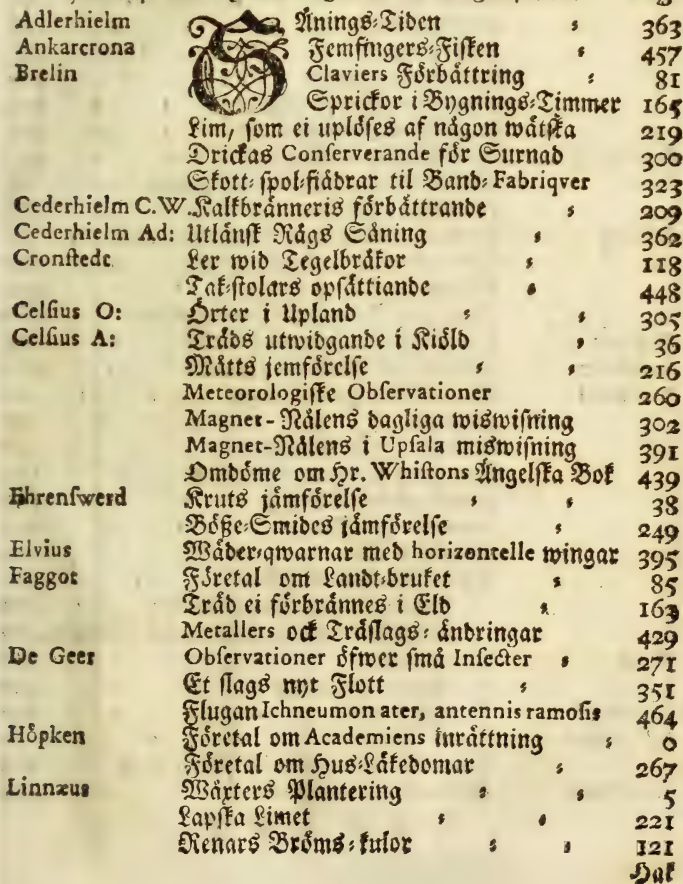 Adlerhielm SÅnings-Tiden 363
Ankarcrona Femfingers-Fisken 457
Brelin Claviers Förbättring 81
Sprickor i Bygnings-Timmer 165
Lim, som ei uplöses af någon wätska 219
Drickas Conserverande för Surnad 300
Skott-spol-fiädrar til Band-Fabriqver 323
Cederhielm C.W. Kalkbränneris förbättrande 209
Cederhielm Ad: Utländsk Rågs Såning 362
Cronstedt Ler wid Tegelbräkor 118
Tak-stolars opsättiande 448
Celsius O: Örter i Upland 305
Celsius A: Träds utwidgande i Kiöld 36
Mätts jemförelse 216
Meteorologiske Observationer 260
Magnet-Nålens dagliga wiswisning 302
Magnet-Nålens i Upsala miswisning 391
Omdöme om Hr. Whistons Ängelska Bok 439
Ehrenswerd Kruts jämförelse 38
Böße-Smides jämförelse 249
Elvius Wäder-qwarnar med horizontelle wingar 395
Faggot Företal om Landt-bruket 85
Träd ei förbrännes i Eld 163
Metallers ock Träslags-änbringar 429
De Geer Observationer öfwer små Insecter 271
Et slags nyt Flott 351
Flugan Ichneumon ater, antennis ramosis 464
Höpken Företal om Academiens inrättning 0
Företal om Hus-Läkedomar 267
Linnæus Wäxters Plantering 5
Lapska Limet 221
Renars Bröms-kulor 121
Hak